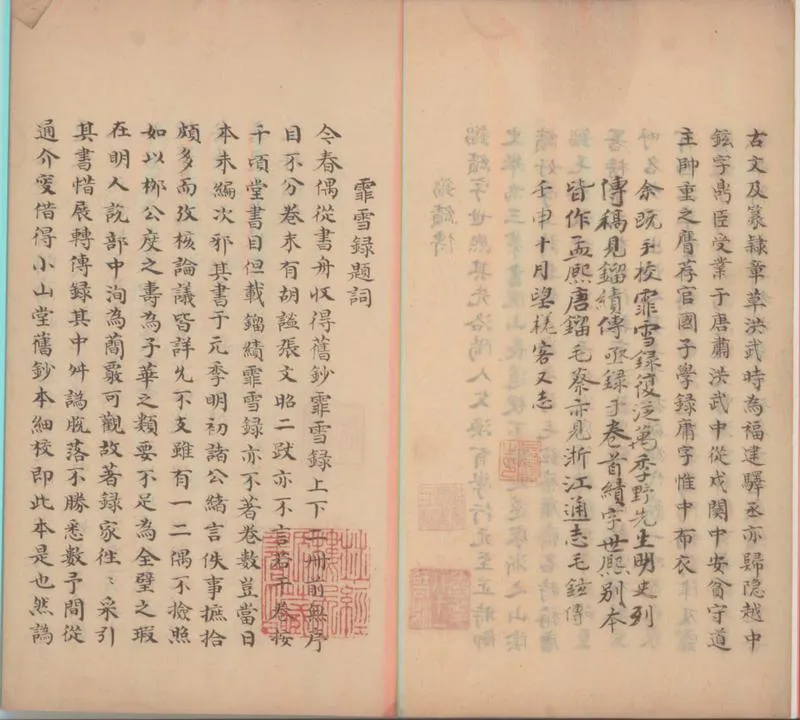 古文及篆隸章草洪武時為福建驛丞亦歸隱越中
鉉字鼎臣受業于唐肅洪武中從戍関中安貧守道
主帥重之膺荐官國子學録庸字惟中布衣
余既手校霏雪録復泛萬季野先生明史列
傳稿見鎦績傳亟録于卷首績字世熙別本
皆作孟熙唐鎦毛蔡亦見浙江通志毛鉉傳
壬申十月望槎客又志
霏雪録題詞
今春偶從書舟収得舊鈔霏雪録上下二冊前無序
目不分卷末有胡謐張文昭二跋亦不言若干卷按
千頃堂書目但載鎦績霏雪録亦不著卷數豈當日
本未編次邪其書于元季明初諸公緒言佚事摭拾
頗多而攷核論議皆詳允不支雖有一二偶不撿照
如以柳公度之壽為子華之類要不足為全璧之瑕
在明人說部中洵為簡覈可觀故著録家往〻采引
其書惜展轉傳録其中舛譌脫落不勝悉數予間從
通介叟借得小山堂舊鈔本細校即此本是也然譌